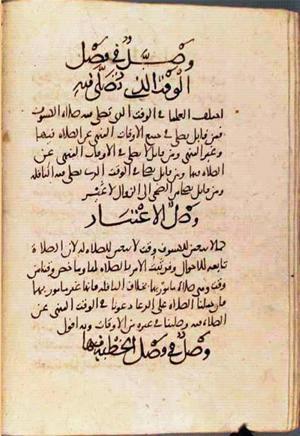 وصل في فصل
الوقت الذي تصلى فيه
اختلف العلما في الوقت الذي تصلى فيه صلاة الكسوف
فمن قايل يصلى في جميع الاوقات المنهي عن الصلاة فيها
وغير المنهي ومن قايل لا يصلى في الاوقات المنهي عن
الصلاة فيها ومن قايل تصلى في الوقت الذي تصلى فيه النافلة
ومن قايل من الضحى الى الزوال لا غير
وصل الاعتبار
لما لا يتعين للكسوف وقت لا يتعين للصلاة له لان الصلاة
تابعه للاحوال وقد ثبت الامر بالصلاة لها وما خص وقتا من
وقت وهي صلاة مامور بها بخلاف النافلة فانها غير مامور بها
فان حملنا الصلاة على الدعا دعونا في الوقت المنهي عن
الصلاة فيه وصلينا في غيره من الاوقات وبه اقول
وصل في فصل الخطبة فيها